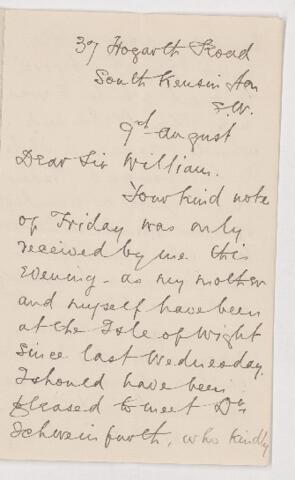 37 Hogarth Road
South Kensington
S.W.
9th august
Dear Sir William.
Your kind note
of Friday was only
received by me this
Evening - as my mother
and myself have been
at the Isle of Wight
Since last Wednesday.
I should have been
pleased to meet Dr.
Schweinfurth, who kindly